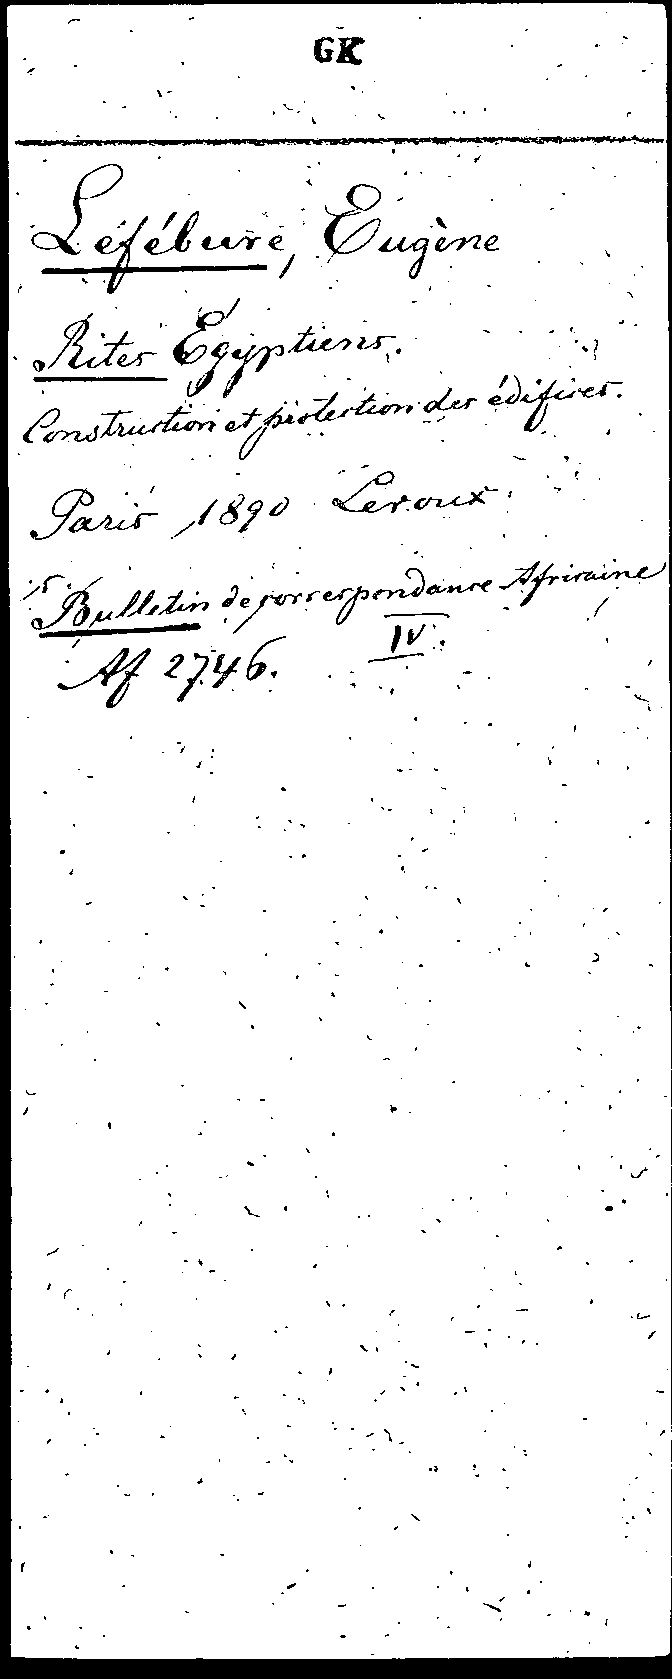 GK
Léfébure, Eugène
Rites Égyptiens.
Construction et protection des édifices.
Paris 1890 Leroux.
Bulletin de correspondance Africaine
IV.
Af 2746.